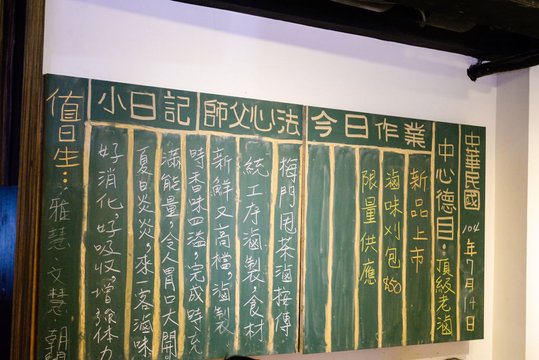 中華民國 104年7月14日
中心德目：頂級老滷
今日作業
新品上市
滷味刈包 $50
限量供應
師父心法
梅門甩茶滷按傳
統工序滷製，食材
新鮮又高檔，滷製
小日記
時香味四溢，完成時充
滿能量，令人胃口大開
夏日炎炎，來一客滷味
好消化，好吸收，增強体力
值日生：雅慧 文慧 朝